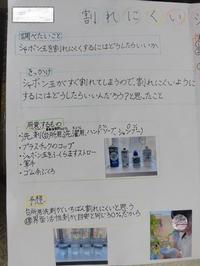 割れにくいシ
調べたいこと
シャボン玉を割れにくくするにはどうしたらいいか
きっかけ
シャボン玉がすぐ割れてしまうので、割れにくいように
するにはどうしたらいいんだろう？と思ったこと
用意するもの
・洗剤(台所用、洗濯用、ハンドソープ、シャンプー)
・プラスチックのコップ
・シャボン玉をふくらますストロー
・軍手
・ゴム手ぶくろ
予想
台所用洗剤がいちばん割れにくいと思う
(界面活性剤が
30%だから